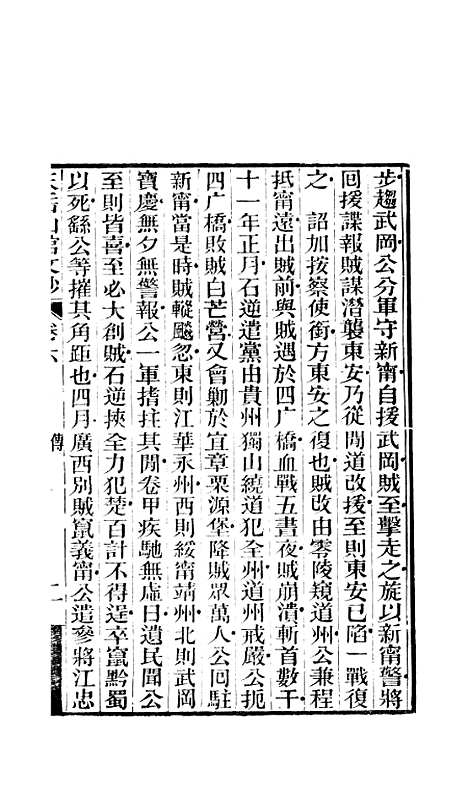 步趨武岡公分軍守新甯自援武岡賊至擊走之旋以新甯警將
回援諜報賊謀潛襲東安乃從閒道改援至則東安已陷一戰復
之　詔加按察使銜方東安之復也賊改由零陵窺道州公兼程
抵甯遠出賊前與賊遇於四广橋血戰五晝夜賊崩潰斬首數千
十一年正月石逆遣黨由貴州獨山繞道犯全州道州戒嚴公扼
四广橋敗賊白芒營又會勦於宜章栗源堡降賊眾萬人公回駐
新甯當是時賊蹤飈忽東則江華永州西則綏甯靖州北則武岡
寶慶無夕無警報公一軍搘拄其閒卷甲疾馳無虛日遺民聞公
至則皆喜至必大創賊石逆挾全力犯楚百計不得逞卒竄黔蜀
以死繇公等摧其角距也四月廣西別賊竄義甯公遣參將江忠
天岳山館文鈔　卷六　傳　二